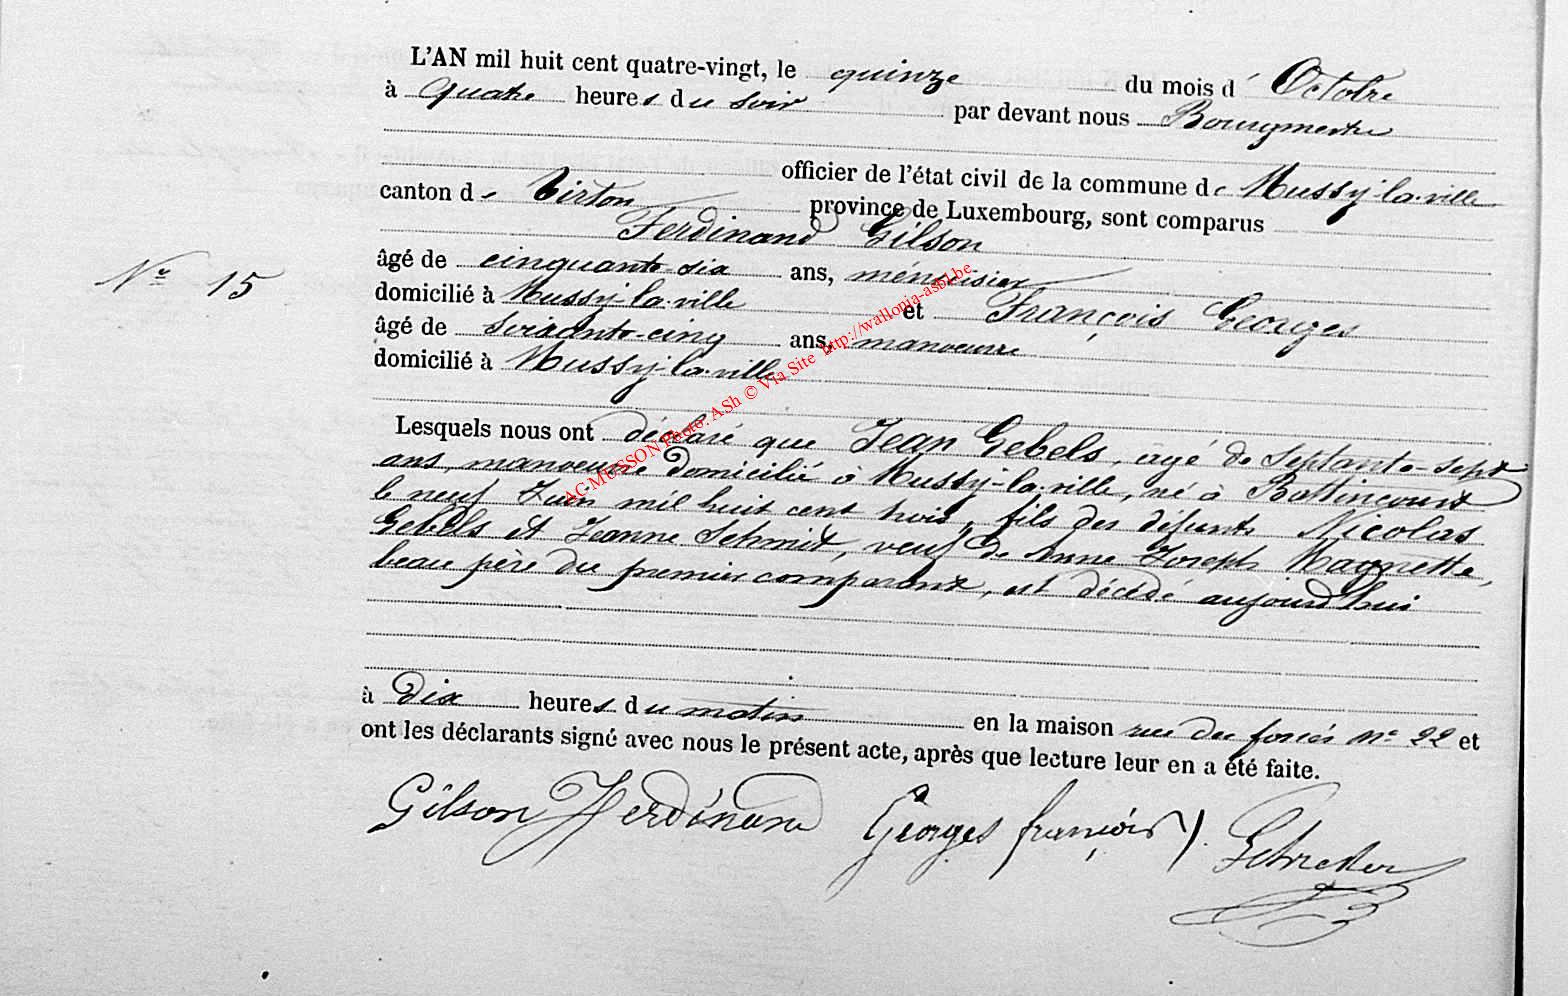 L'AN mil huit cent quatre-vingt, le quinze du mois d' Octobre
à quatre heures du soir par devant nous Bourgmestre
officier de l'état civil de la commune de Mussy-la-ville
canton de Virton province de Luxembourg, sont comparus
Ferdinand Gilson
âgé de cinquante-six ans, ménuisier
domicilié à Mussy-la-ville et François Georges
N° 15
âgé de soixante-cinq ans, manoeuvre
domicilié à Mussy-la-ville
Lesquels nous ont déclaré que Jean Gebels, agé de septante-sept
ans, manoeuvre domicilié à Mussy-la-ville, né à Battincourt
le neuf Juin mil huit cent trois, fils des défunts Nicolas
Gebels et Jeanne Schmit, veuf de Anne Joseph Magnette,
beau père du premier comparant, est décédé aujourd'hui
à dix heures du matin en la maison rue du n° 22 et
ont les déclarants signé avec nous le présent acte, après que lecture leur en a été faite.
Gilson Ferdinand Georges françois
AC MUSSON Photo: ASh © Via Site http://wallonia-asbl.be